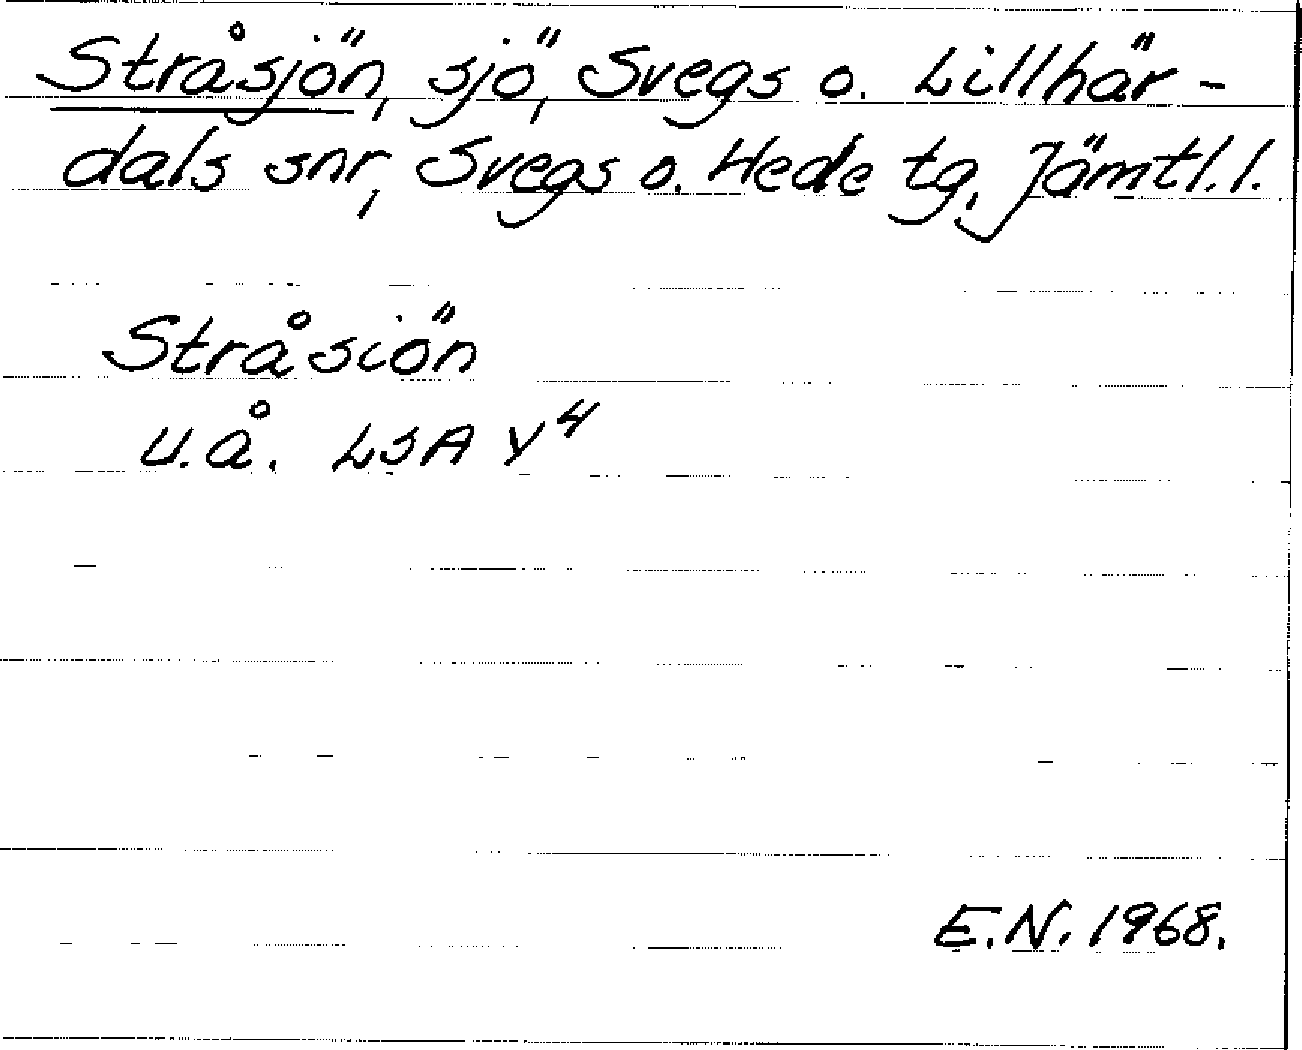 Stråsjön, sjö, Svegs o. Lillhär-
dals snr, Svegs o. Hede tg, Jämtl.l.
Stråsiön
u.å. LSA Y4
E.N. 1968.